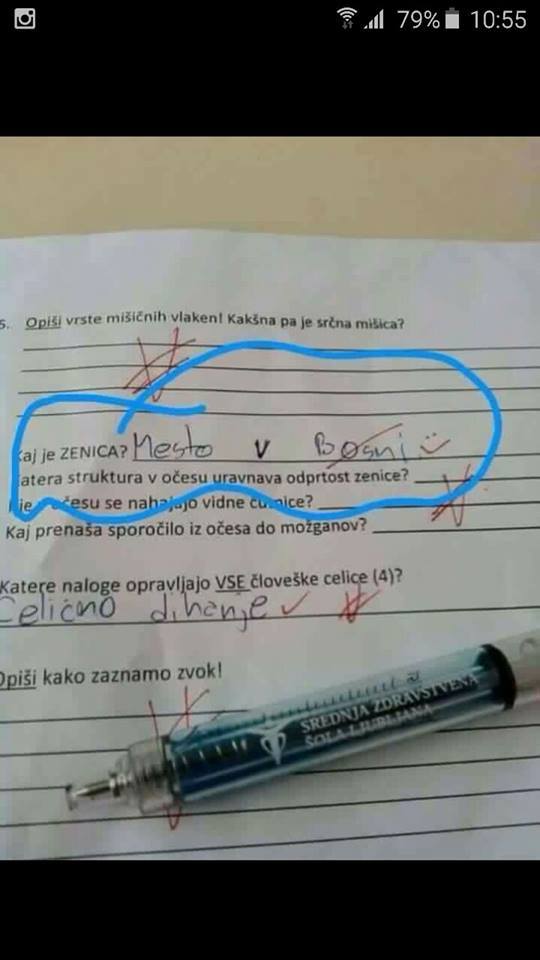 79% 10:55
5. Opiši vrste mišičnih vlaken! Kakšna pa je srčna mišica?
Kaj je ZENICA? Mesto v Bosni
Katera struktura v očesu uravnava odprtost zenice?
je očesu se nahajajo vidne čutnice?
Kaj prenaša sporočilo iz očesa do možganov?
Katere naloge opravljajo VSE človeške celice (4)?
Celično dihanje
Opiši kako zaznamo zvok!
SREDNJA ZDRAVSTVENA
ŠOLA LJUBLJANA